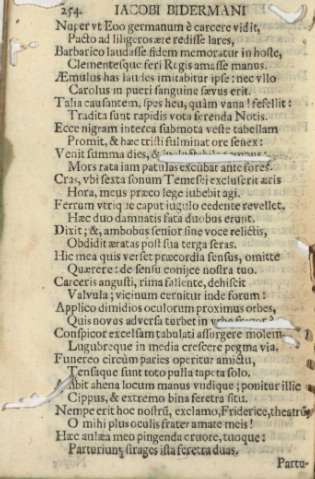 254. IACOBI BIDERMANI
Nuper vt Eoo germanum è carcere vidit,
Pacto ad liligeros ære redisse lares,
Barbarico laudasse fidem memoratur in hoste,
Clementesque feri Regis amasse manus.
Æmulus has laudes imitabitur ipse: nec vllo
Carolus in pueri sanguine sævus erit.
Talia causantem, spes heu, quàm vana! fefellit:
Tradita sunt rapidis vota ferenda Notis.
Ecce nigram interea submota veste tabellam
Promit, & hæc tristi fulminat ore senex:
Venit summa dies, &
Mors rata iam patulas excubat ante fores.
Cras, vbi sexta sonum Temesei excluserit æris
Hora, meus præco lege iubebit agi.
Ferrum vtriq; caput iugulo cedente revellet,
Hæc duo damnatis fata duobus erunt.
Dixit; &, ambobus senior sine voce relictis,
Obdidit æratas post sua terga seras.
Hic mea quis verset præcordia sensus, omitte
Quærere: de sensu coniice nostra tuo.
Carceris angusti, rima saliente, dehiscit
Valvula; vicinum cernitur inde forum:
Applico dimidios oculorum proximus orbes,
Quis novus adversa turbet in
Conspicor excelsam tabulati assurgere molem
Lugubreque in media crescere pegma via.
Funereo circùm paries operitur amictu,
Tensaque sunt toto pulla tapeta solo.
Ambit ahena locum manus vndique; ponitur illic
Cippus, & extremo bina feretra situ.
Nempe erit hoc nostrũ, exclamo, Friderice, theatrũ,
O mihi plus oculis frater amate meis!
Hæc aulæa meo pingenda cruore, tuoque:
Parturiunt strages ista feretra duas.
Partu-